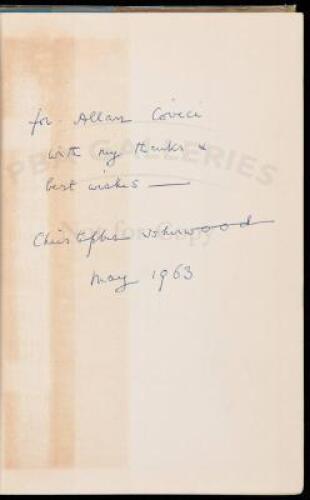 for Allan Covici
with my thanks &
best wishes —
Christopher Isherwood
May 1963
PBA GALLERIES
Not for Copy